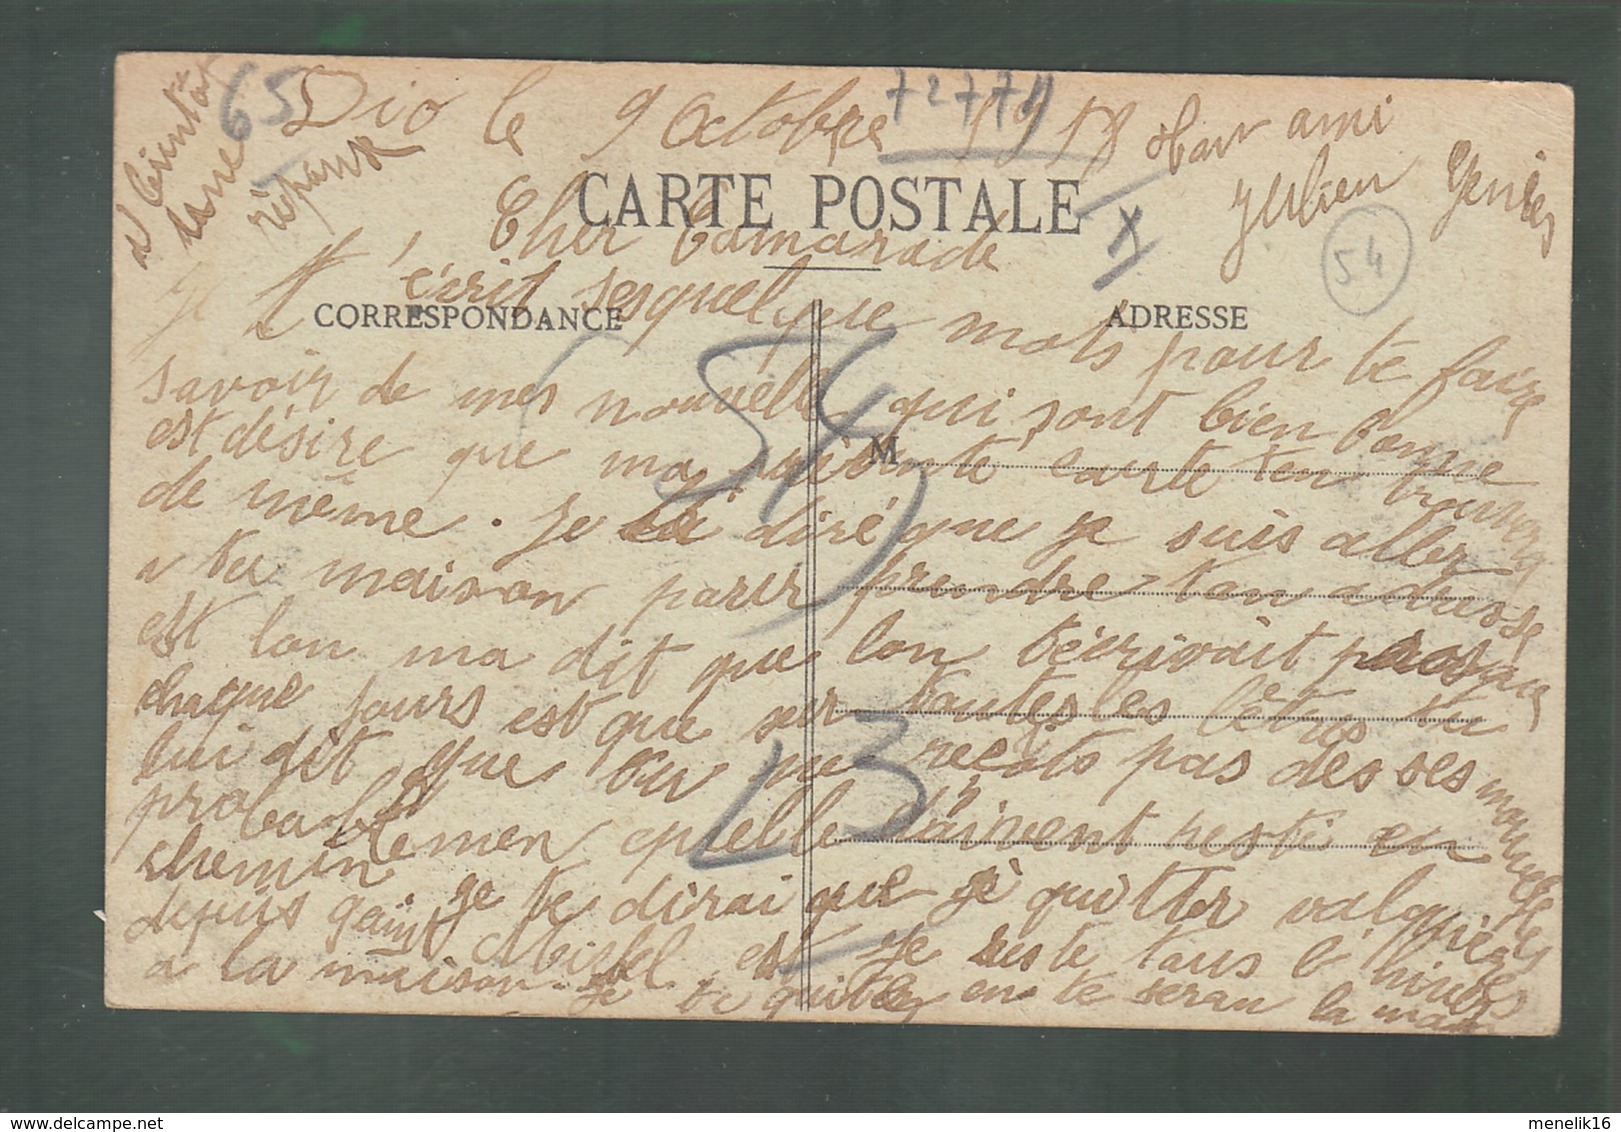 a bientot
dans
réponse
65
Dio le 9 Octobre 1918
72774
Ton ami
Julien Geniès
CARTE POSTALE
54
X
Cher Camarade
CORRESPONDANCE
ADRESSE
Je t'écrit ses quelque mots pour te faire
savoir de mes nouvelle qui sont bien bonne
M
est désire que ma présente carte t'en trouvera
de même. Je te diré que je suis aller
a ta maison parir prendre ton adresse
est lon ma dit que lon técrivait presque
chaque jours est que sur toutes les lêtres tu
lui dit que tu ne recois pas des ses nouvelles
probablemen quelle doivent resté en
chemin je te dirai que jè quitter valquières
depuis Saint Michel est je reste tous l'hiver
a la maison. Je te quitte en te seran la main
54
L3
menelik16